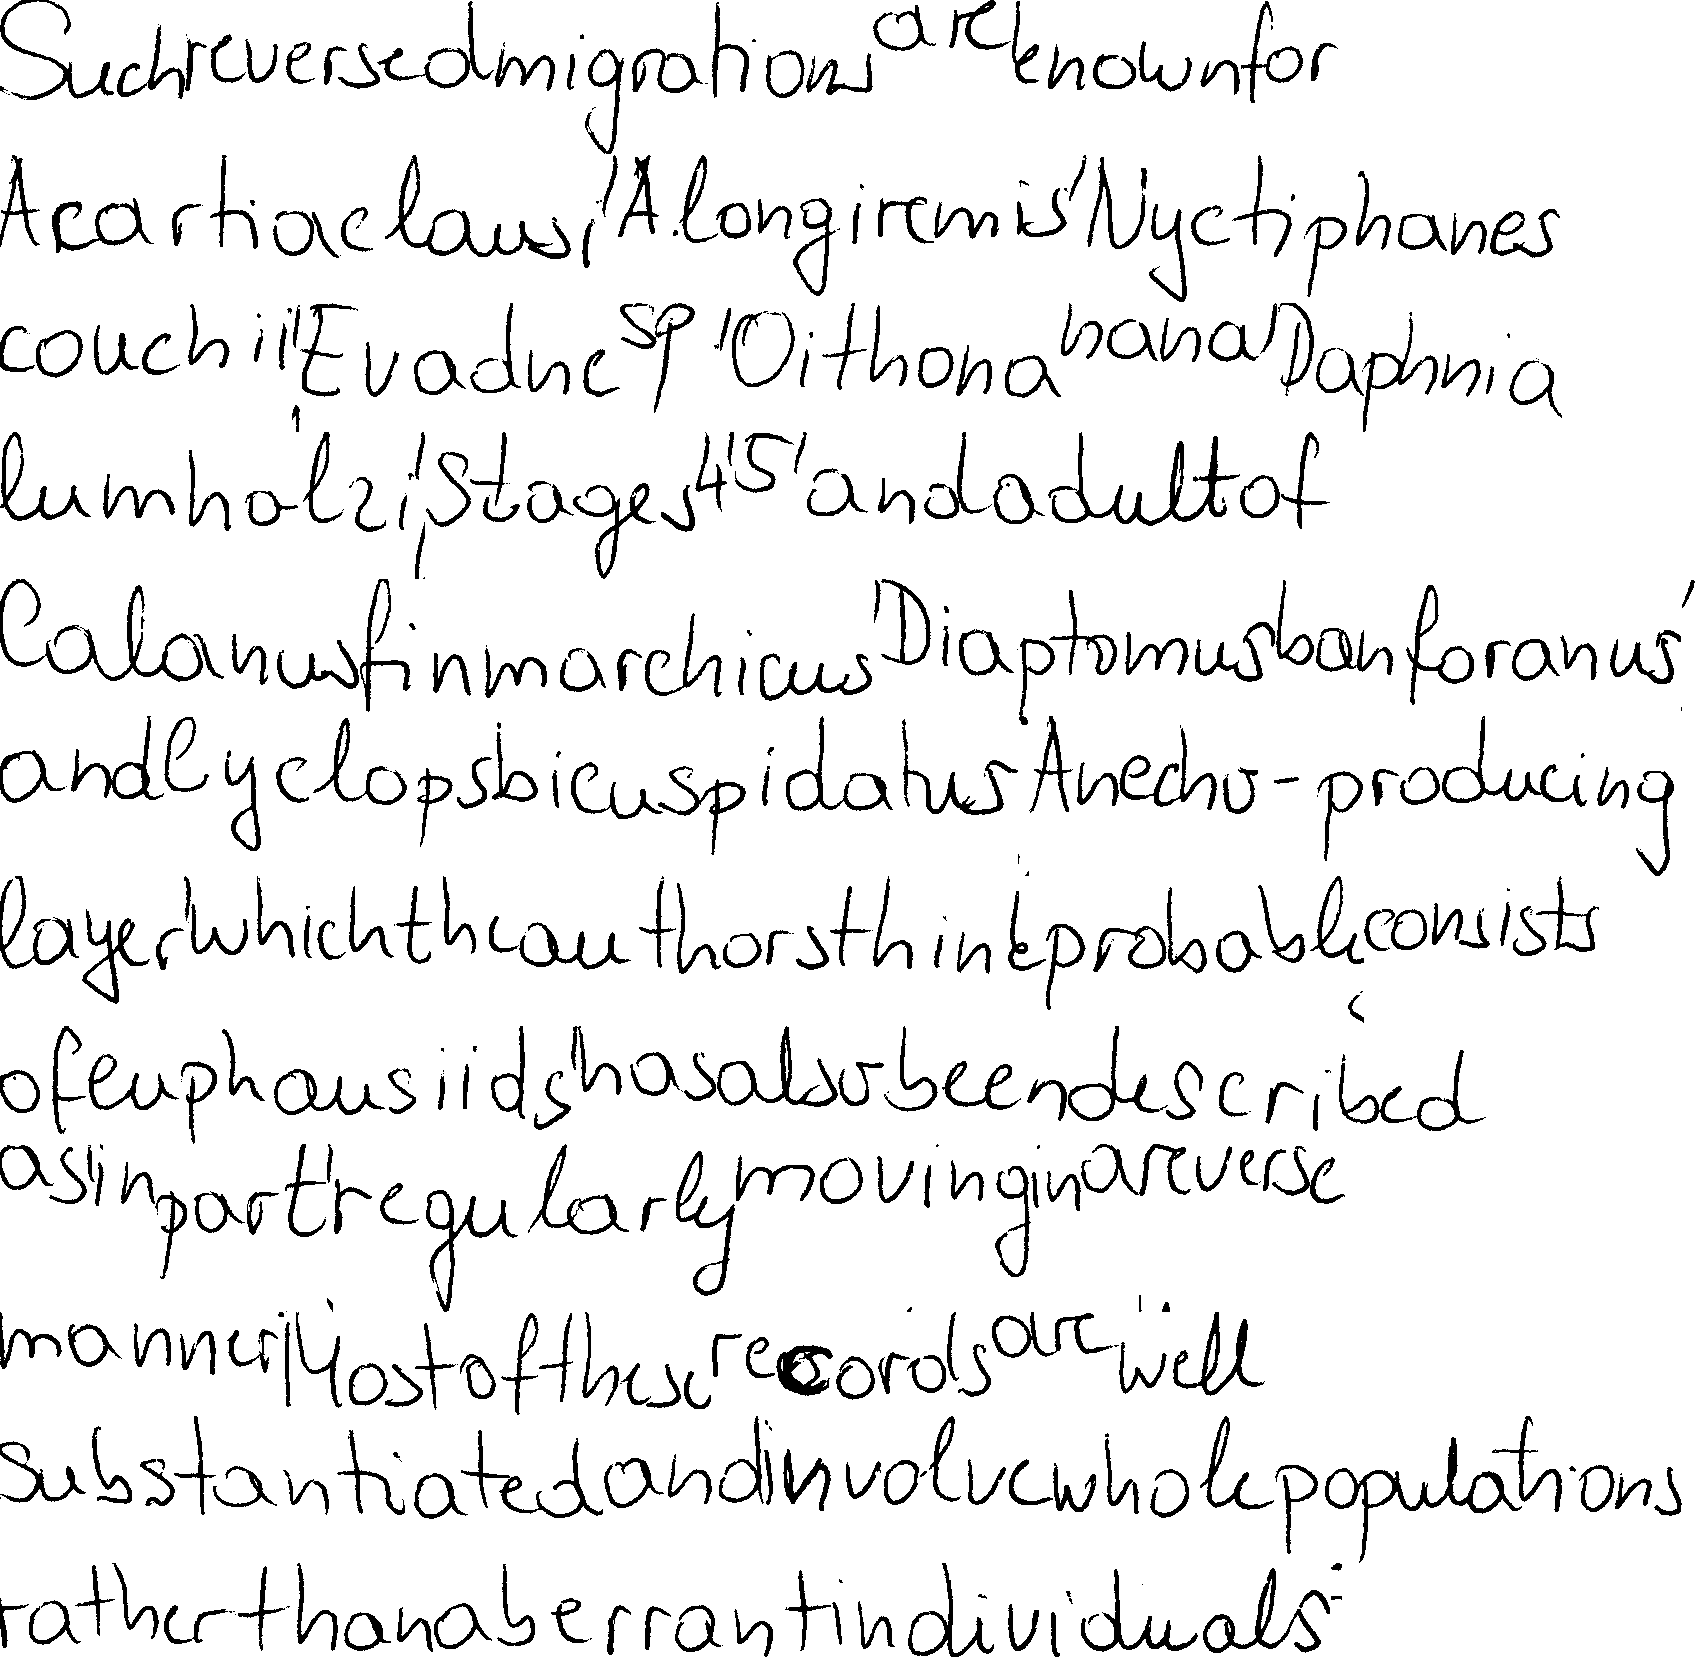 Such reversed migrations are known for
Acartia clausi, A. longiremis, Nyctiphanes
couchii, Evadne sp, Oithona nana, Daphnia
lumholzi, Stages 4, 5, and adult of
Calanus finmarchicus, Diaptomus banforanus,
and Cyclops bicuspidatus. An echo-producing
layer, which the authors think probable consists
of euphausiids, has also been described
as, in part, regularly moving in a reverse
manner. Most of these records are well
substantiated and involve whole populations
rather than aberrant individuals.